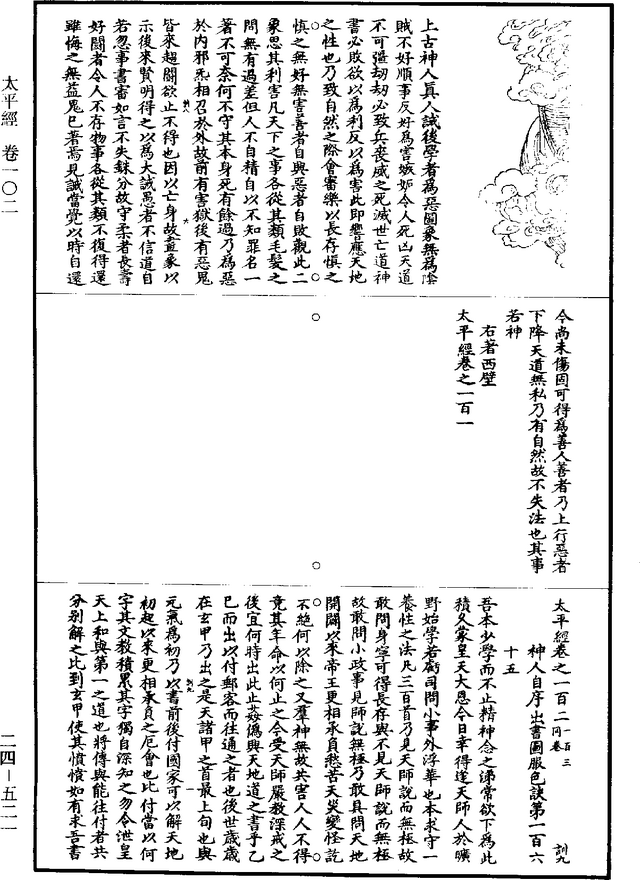 上古神人真人誡後學者為惡圖象無為陰
賊不好順事反好為害嫉妒令人死凶天道
不可彊劫劫必致兵喪威之死滅世亡道神
書必敗欲以為利反以為害此即響應天地
之性也乃致自然之際會審樂以長存慎之
慎之無好無害善者自興惡者自敗觀此二
象思其利害凡天下之事各從其類毛髮之
間無有過差但人不自精自以不知罪名一
著不可奈何不守其本身死有餘過乃為惡
於內邪炁相召於外故前有害獄後有惡鬼
皆來趨鬭欲止不得也因以亡身故畫象以
示後來賢明得之以為大誡愚者不信道自
若忽事書審如言不失銖分故守柔者長壽
好鬭者令人不存物事各從其類不復得還
雖悔之無益鬼已著焉見誠當覺以時自還
今尚未傷固可得為善人善者乃上行惡者
下降天道無私乃有自然故不失法也其事
若神
右著西壁
太平經卷之一百一
太平經卷之一百二 一百三同卷 訓九
神人自序出書圖服色訣第一百六
十五
吾本少學而不止精神念之涕常欲下為此
積久蒙皇天大恩今日幸得逢天師人於曠
野始學若戲司問小事外浮華也本求守一
養性之法凡三百首乃見天師說而無極故
敢問身寧可得長存與不見天師說而無極
故敢問小政事見師說無極乃敢具問天地
開闢以來帝王更相承負愁苦天災變怪訖
不絕何以除之又羣神無故共害人人不得
竟其年命以何止之今受天師嚴教深戒之
後宜何時出此止姦偽興天地道之書乎乙
巳而出以付郵客而往通之者也後世歲歲
在玄甲乃出之是天諸甲之首最上旬也與
元氣為初乃以書前後付國家可以解天地
初起以來更相承負之厄會也比付當以何
字其文教積累其字獨自深知之勿令泄皇
天上和與第一之道也將傳與能往付者共
分別解之比到玄甲使其憒憒如有求吾書
太平經 卷一〇二
二四－五二一